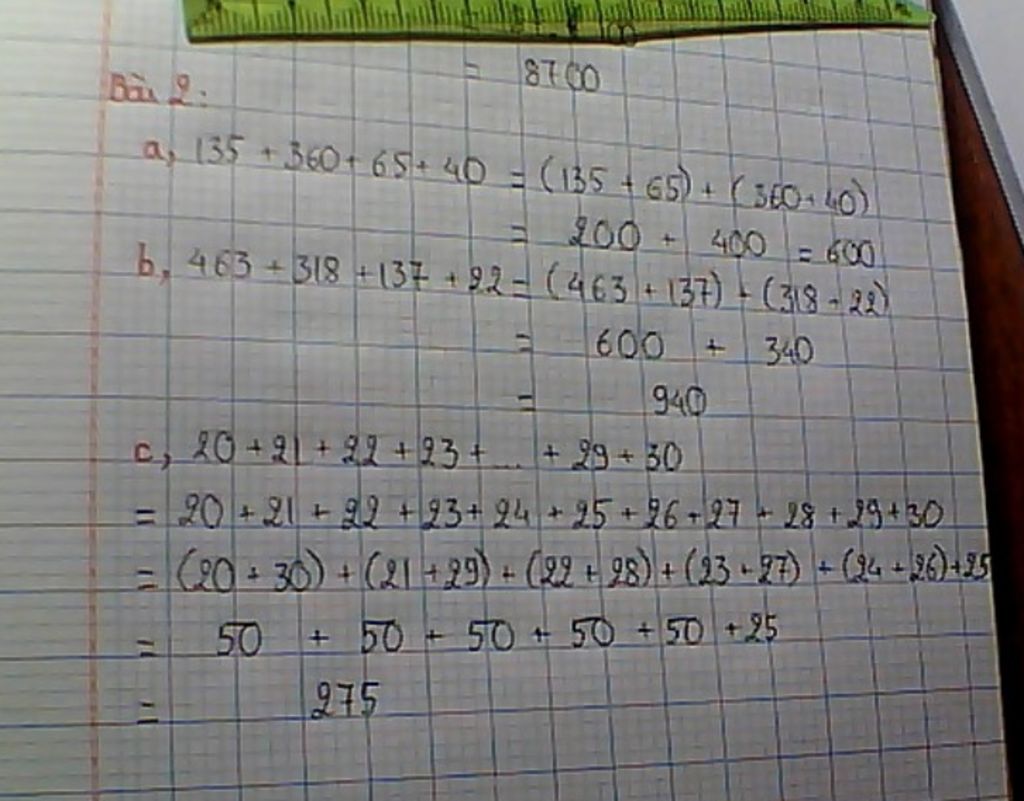 = 8700
Bài 2:
a, 135 + 360 + 65 + 40 = (135 + 65) + (360 + 40)
= 200 + 400 = 600
b, 463 + 318 + 137 + 22 = (463 + 137) + (318 + 22)
= 600 + 340
= 940
c, 20 + 21 + 22 + 23 + ... + 29 + 30
= 20 + 21 + 22 + 23 + 24 + 25 + 26 + 27 + 28 + 29 + 30
= (20 + 30) + (21 + 29) + (22 + 28) + (23 + 27) + (24 + 26) + 25
= 50 + 50 + 50 + 50 + 50 + 25
= 275